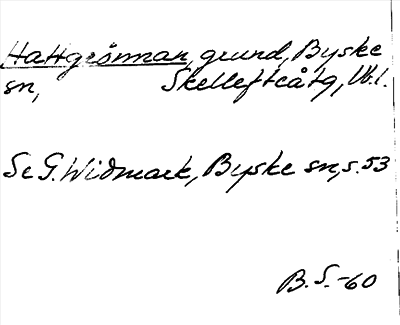 Hattgrönnan, grund, Byske
sn, Skellefteåtg, Vb.l.
Se G. Widmark, Byske sn, s. 53
B.S. -60